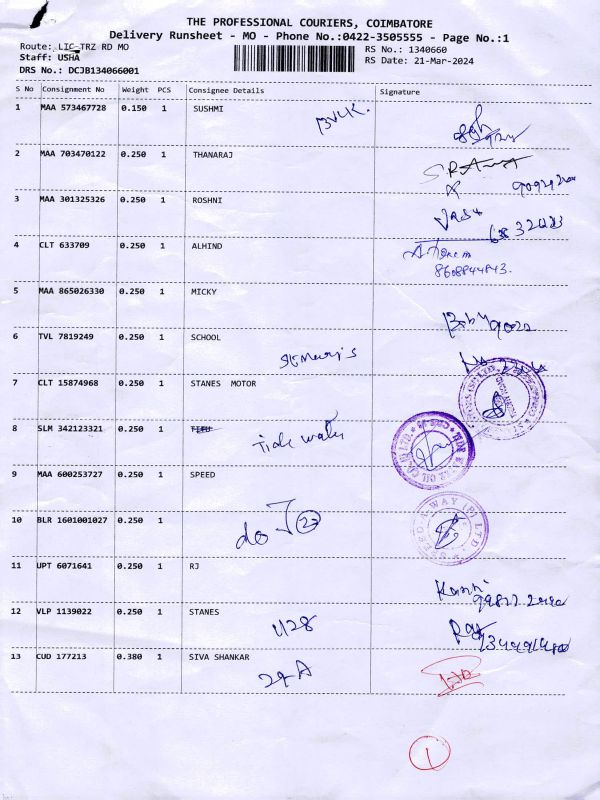 THE PROFESSIONAL COURIERS, COIMBATORE
Delivery Runsheet - MO - Phone No.:0422-3505555 - Page No.:1
Route: LIC TRZ RD MO
RS No.: 1340660
Staff: USHA
RS Date: 21-Mar-2024
DRS No.: DCJB134066001
S No Consignment No Weight PCS Consignee Details Signature
1 MAA 573467728 0.150 1 SUSHMI
2 MAA 703470122 0.250 1 THANARAJ
3 MAA 301325326 0.250 1 ROSHNI
4 CLT 633709 0.250 1 ALHIND
8608844843.
5 MAA 865026330 0.250 1 MICKY
6 TVL 7819249 0.250 1 SCHOOL
St Mary's
7 CLT 15874968 0.250 1 STANES MOTOR
8 SLM 342123321 0.250 1
Tide water
9 MAA 600253727 0.250 1 SPEED
10 BLR 1601001027 0.250 1
do 22
11 UPT 6071641 0.250 1 RJ
12 VLP 1139022 0.250 1 STANES
U28
13 CUD 177213 0.380 1 SIVA SHANKAR
29A
1